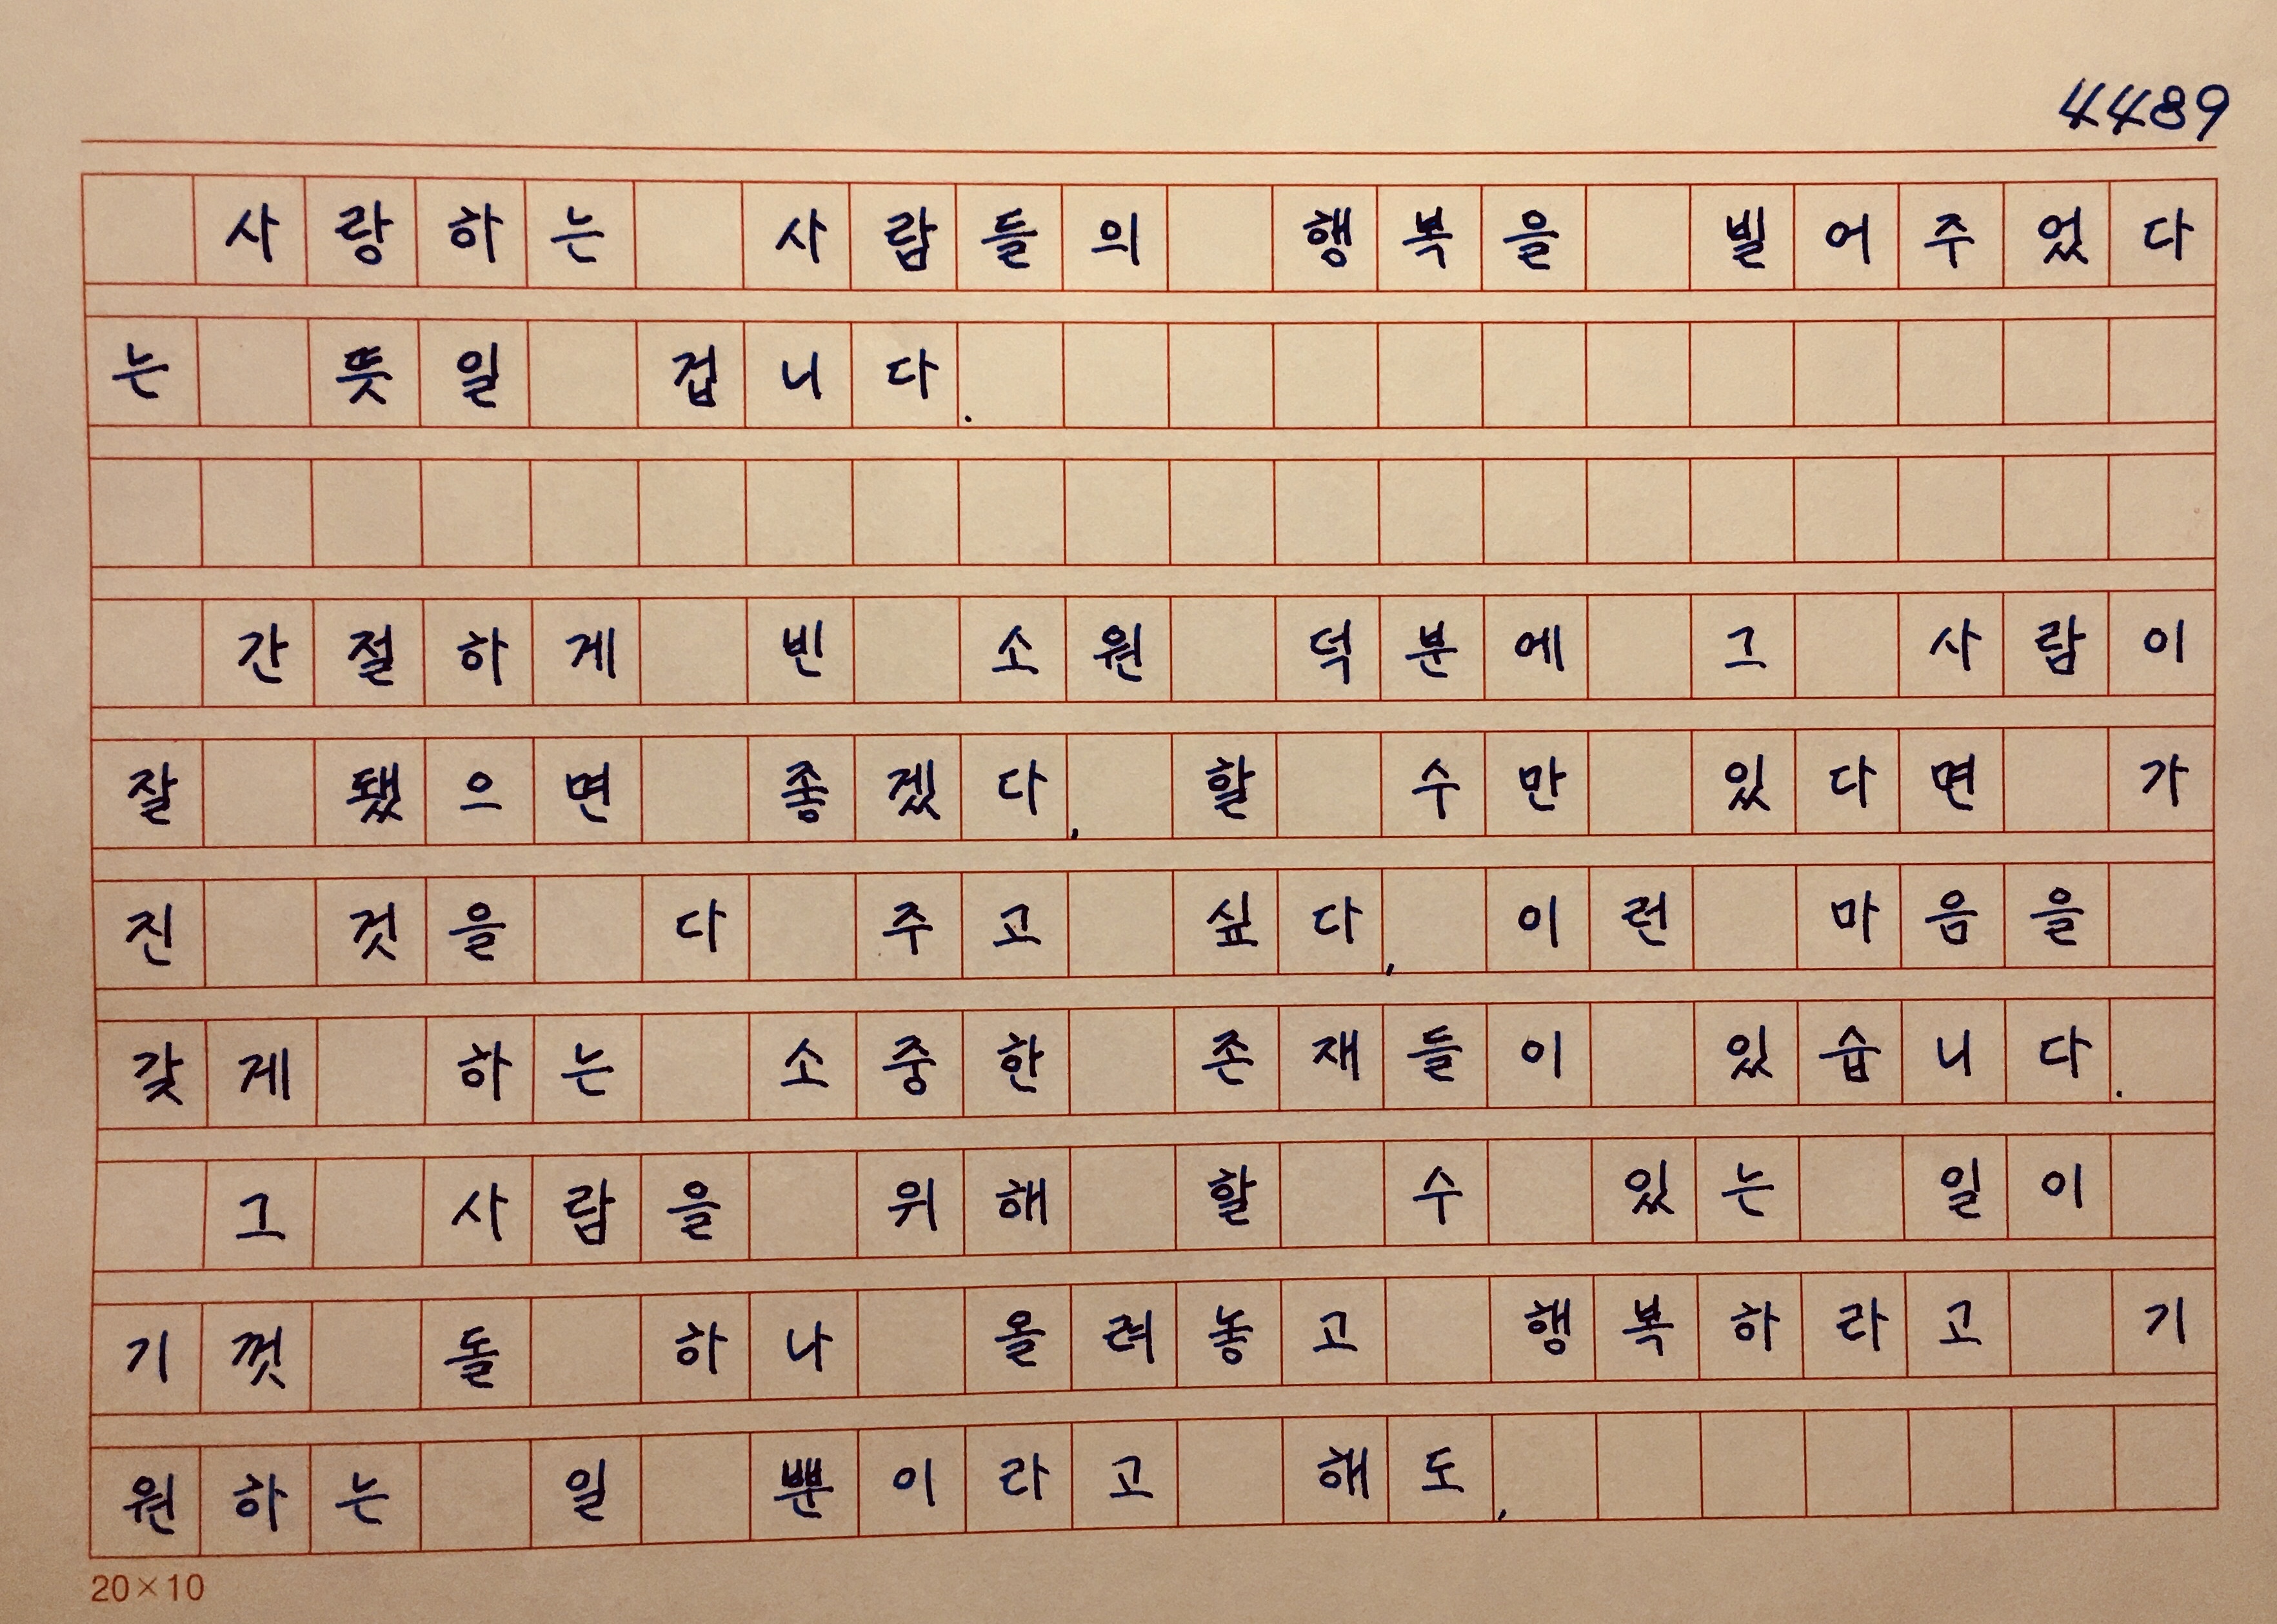 4489
사랑하는 사람들의 행복을 빌어주었다
는 뜻일 겁니다.
간절하게 빈 소원 덕분에 그 사람이
잘 됐으면 좋겠다, 할 수만 있다면 가
진 것을 다 주고 싶다, 이런 마음을
갖게 하는 소중한 존재들이 있습니다.
그 사람을 위해 할 수 있는 일이
기껏 돌 하나 올려놓고 행복하라고 기
원하는 일 뿐이라고 해도,
20×10